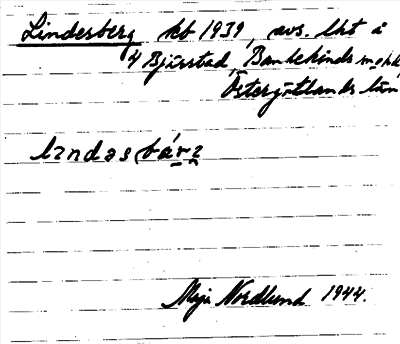 Linderberg kb 1939, avs. lht å
4 Bjärstad, Bankekinds
Östergötlands län
Maja Nordlund 1944.